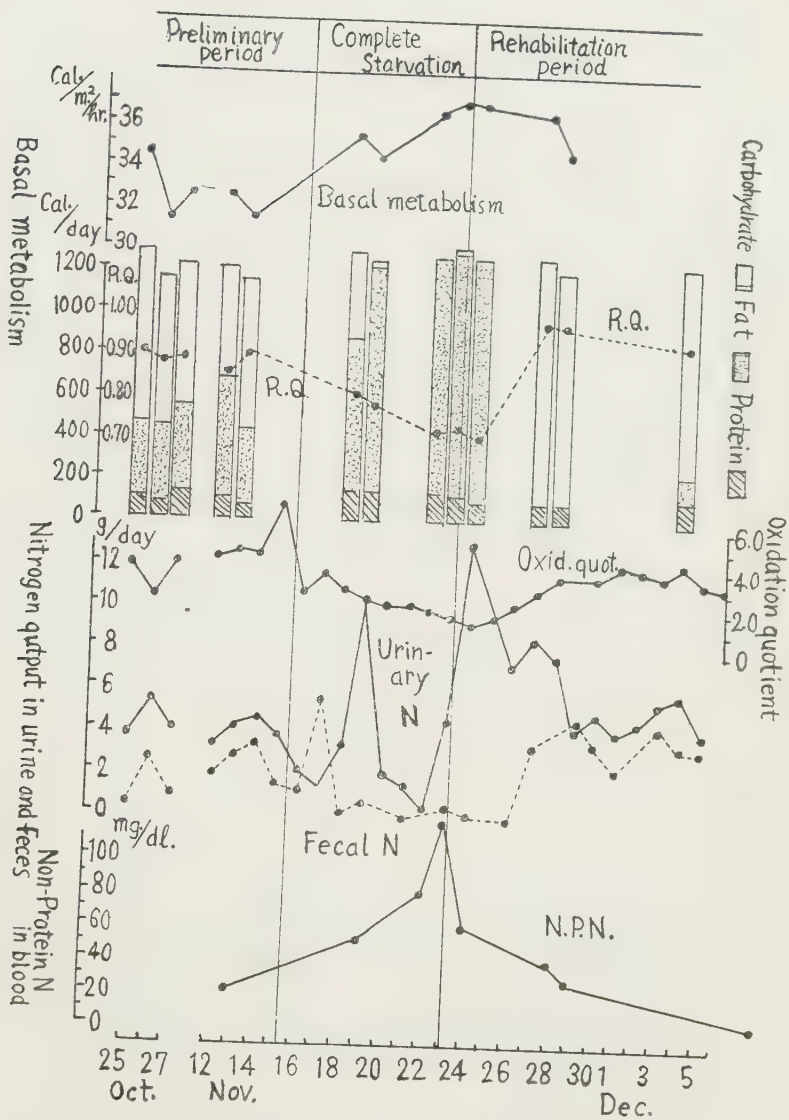 Preliminary period
Complete Starvation
Rehabilitation period
Cal./m²/hr.
36
34
32
30
Basal metabolism
Basal metabolism
Cal./day
1200
1000
800
600
400
200
0
R.Q.
1.00
0.90
0.80
0.70
R.Q.
R.Q.
Carbohydrate Fat Protein
g/day
12
10
8
6
4
2
0
Nitrogen output in urine and feces
Oxid. quot.
6.0
4.0
2.0
0
Oxidation quotient
Urin-
ary
N
Fecal N
mg/dl.
100
80
60
40
20
0
Non-Protein N
in blood
N.P.N.
25 27 12 14 16 18 20 22 24 26 28 30 1 3 5
Oct. Nov. Dec.